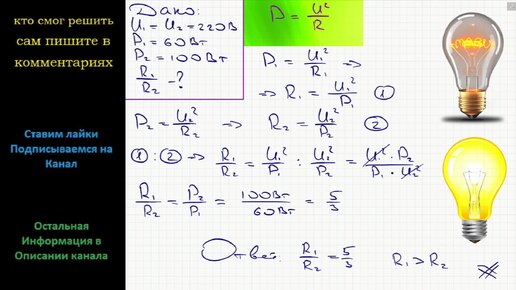 кто смог решить
сам пишите в
комментариях
Ставим лайки
Подписываемся на
Канал
Остальная
Информация в
Описании канала
Дано:
U₁ = U₂ = 220В
P₁ = 60Вт
P₂ = 100Вт
R₁/R₂ - ?
P = U²/R
P₁ = U₁²/R₁ =>
=> R₁ = U₁²/P₁ ①
P₂ = U₂²/R₂ => R₂ = U₂²/P₂ ②
① : ② => R₁/R₂ = U₁²/P₁ : U₂²/P₂ = U₁² · P₂/P₁ · U₂²
R₁/R₂ = P₂/P₁ = 100Вт/60Вт = 5/3
Ответ: R₁/R₂ = 5/3 R₁ > R₂